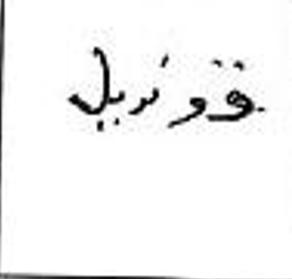 قونديل